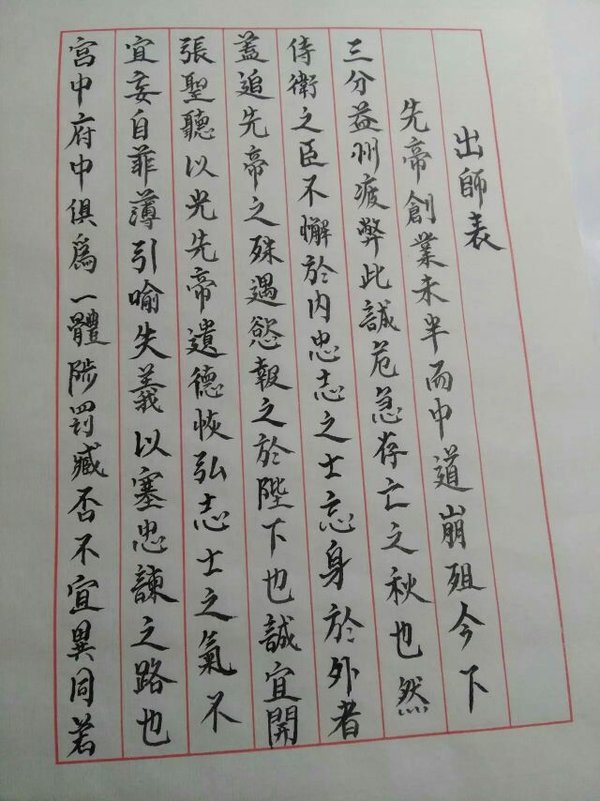 出師表
先帝創業未半而中道崩殂今下
三分益州疲弊此誠危急存亡之秋也然
侍衛之臣不懈於内忠志之士忘身於外者
蓋追先帝之殊遇慾報之於陛下也誠宜開
張聖聽以光先帝遺德恢弘志士之氣不
宜妄自菲薄引喻失義以塞忠諫之路也
宫中府中俱爲一體陟罰臧否不宜異同若